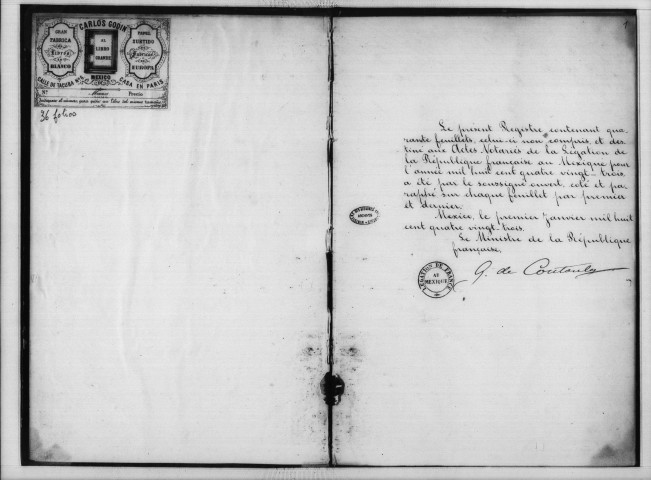 CARLOS GODIN
GRAN
FABRICA
DE
LIBROS
EN
BLANCO
AL
LIBRO
GRANDE
PAPEL
SURTIDO
EUROPA
CALLE DE TACUBA
MEXICO
CASA EN PARIS
Nº
Precio
36 folios
Le présent Registre contenant qua
rante feuillets, celui-ci non compris, et des
tiné aux Actes Notariés de la Légation de
la République française au Mexique pour
l'année mil huit cent quatre vingt-trois,
a été par le soussigné ouvert, coté et pa
raphé sur chaque feuillet par premier
et dernier.
Mexico, le premier Janvier mil huit
cent quatre vingt-trois.
Le Ministre de la République
française,
G. de Coutouly
LEGATION DE FRANCE
AU
MEXIQUE
ARCHIVES